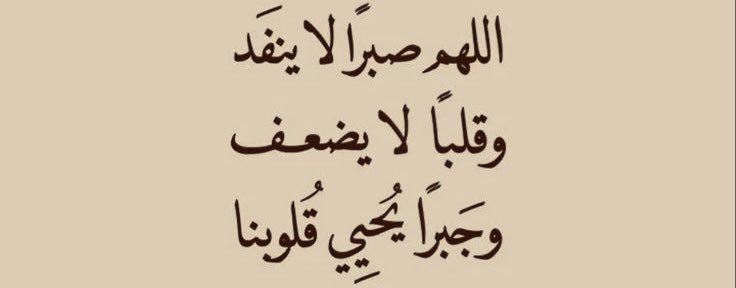 اللهم صبرًا لا ينفَد
وقلبًا لا يضعف
وجَبرًا يُحيِي قُلوبنا